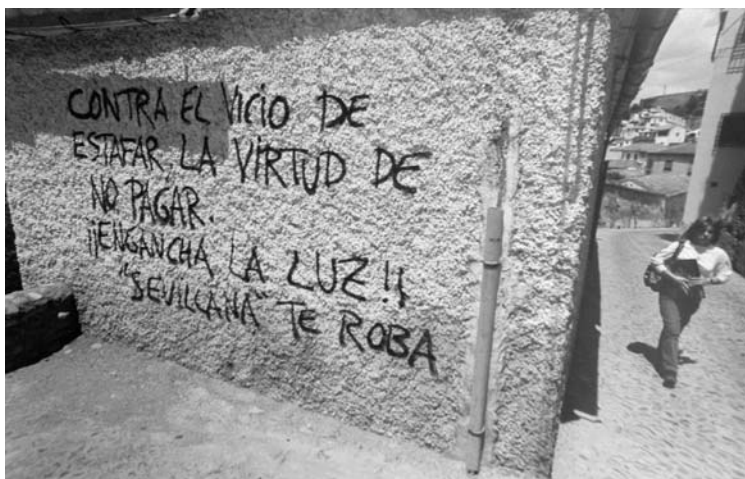 CONTRA EL VICIO DE
ESTAFAR, LA VIRTUD DE
NO PAGAR.
¡¡ENGANCHA LA LUZ!!
"SEVILLANA" TE ROBA